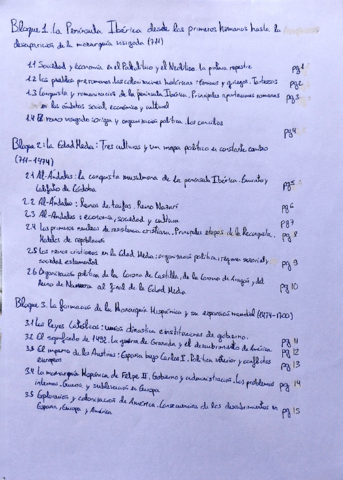 Bloque 1. La Península Ibérica desde los primeros humanos hasta la
desaparición de la monarquía visigoda (711)
1.1 Sociedad y economía en el Paleolítico y el Neolítico. La pintura rupestre pg 1
1.2 Los pueblos prerromanos. Las colonizaciones históricas: fenicios y griegos. Tartessos pg 2
1.3 Conquista y romanización de la península Ibérica. Principales aportaciones romanas pg 3
en los ámbitos social, económico y cultural
1.4 El reino visigodo: origen y organización política. Los concilios pg 4
Bloque 2: La Edad Media: Tres culturas y un mapa político en constante cambio
(711-1474)
2.1 Al-Ándalus: la conquista musulmana de la península Ibérica. Emirato y pg 5
Califato de Córdoba
2.2 Al-Ándalus: Reinos de taifas. Reino Nazarí pg 6
2.3 Al-Ándalus: economía, sociedad y cultura pg 7
2.4 Los primeros núcleos de resistencia cristiana. Principales etapas de la Reconquista. pg 8
Modelos de repoblación
2.5 Los reinos cristianos en la Edad Media: organización política, régimen señorial y pg 9
sociedad estamental
2.6 Organización política de la Corona de Castilla, de la Corona de Aragón y del
Reino de Navarra al final de la Edad Media pg 10
Bloque 3. La formación de la Monarquía Hispánica y su expansión mundial (1474-1700)
3.1 Los Reyes Católicos: unión dinástica e instituciones de gobierno. pg 11
3.2 El significado de 1492. La guerra de Granada y el descubrimiento de América pg 12
3.3 El imperio de los Austrias: España bajo Carlos I. Política interior y conflictos pg 13
europeos
3.4 La monarquía Hispánica de Felipe II. Gobierno y administración. Los problemas pg 14
internos. Guerras y sublevación en Europa
3.5 Exploración y colonización de América. Consecuencias de los descubrimientos en pg 15
España, Europa y América